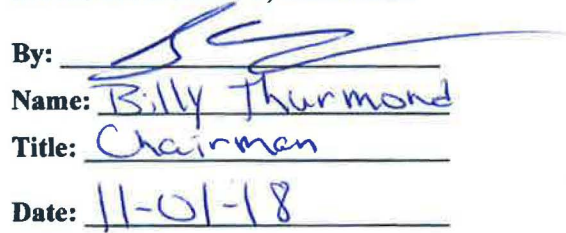 By:
Name: Billy Thurmond
Title: Chairman
Date: 11-01-18